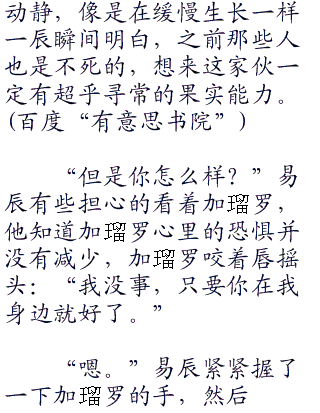 动静，像是在缓慢生长一样
一辰瞬间明白，之前那些人
也是不死的，想来这家伙一
定有超乎寻常的果实能力。
(百度“有意思书院”)
“但是你怎么样？”易
辰有些担心的看着加瑠罗，
他知道加瑠罗心里的恐惧并
没有减少，加瑠罗咬着唇摇
头：“我没事，只要你在我
身边就好了。”
“嗯。”易辰紧紧握了
一下加瑠罗的手，然后